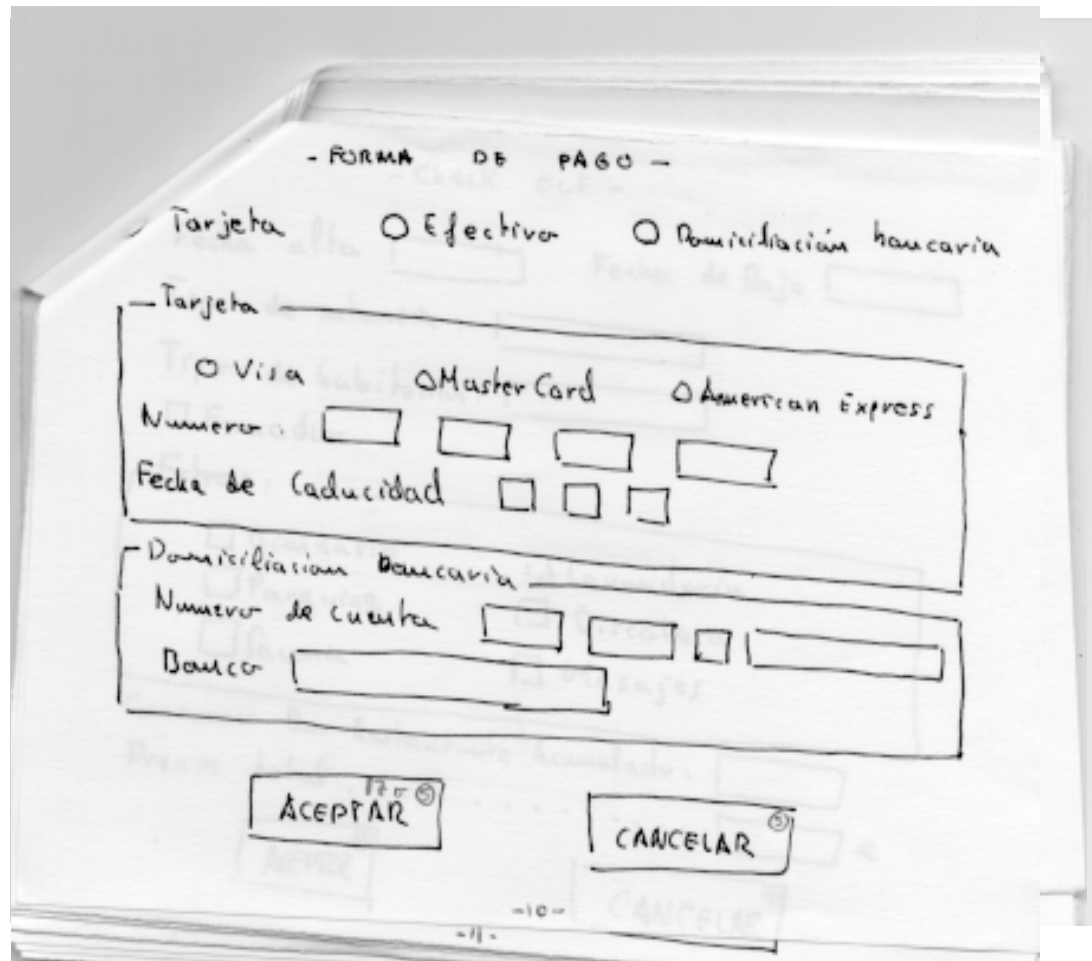 - FORMA DE PAGO -
Tarjeta Efectivo Domiciliación bancaria
Tarjeta
Visa MasterCard American Express
Numero
Fecha de Caducidad
Domiciliacion Bancaria
Numero de cuenta
Banco
ACEPTAR 5
CANCELAR 5
-10-
-11-